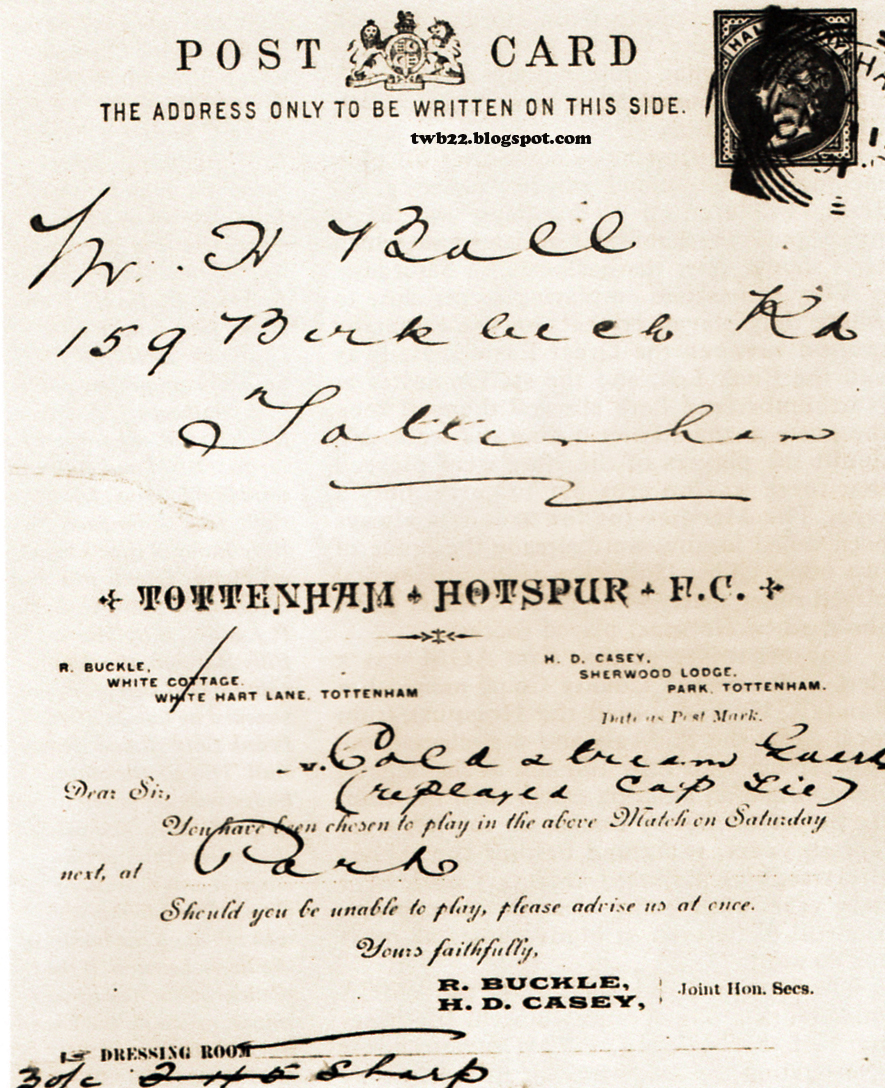 POST CARD
THE ADDRESS ONLY TO BE WRITTEN ON THIS SIDE.
twb22.blogspot.com
HALFPENNY
Mr. H Ball
159 Birkbeck Rd
Tottenham
TOTTENHAM HOTSPUR F.C.
R. BUCKLE,
WHITE COTTAGE.
WHITE HART LANE, TOTTENHAM
H. D. CASEY,
SHERWOOD LODGE,
PARK, TOTTENHAM.
Date as Post Mark.
v. Coldstream Guards
Dear Sir,
(replayed Cup Tie)
You have been chosen to play in the above Match on Saturday
next, at Park
Should you be unable to play, please advise us at once.
Yours faithfully,
R. BUCKLE,
H. D. CASEY,
Joint Hon. Secs.
DRESSING ROOM
2 45 Sharp